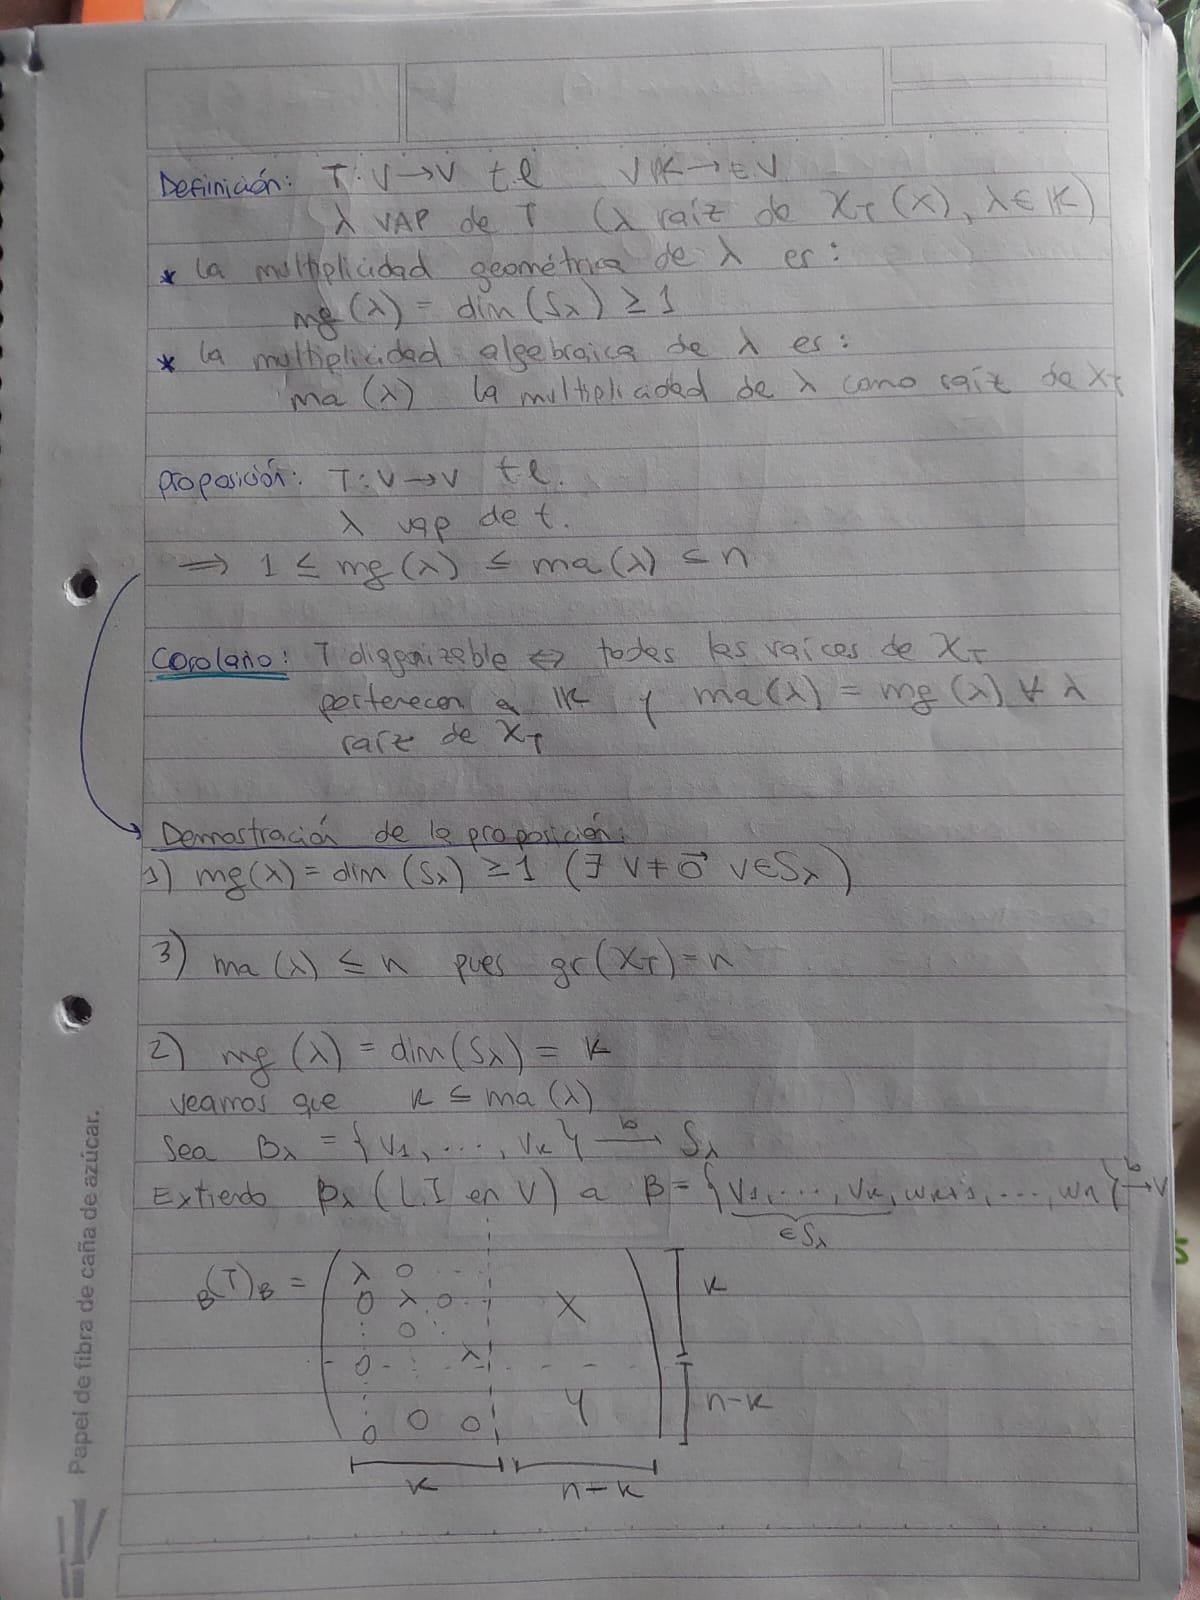 Definición: T: V → V t.l V 𝕂 → e.v
λ VAP de T (λ raíz de χ_T(x), λ ∈ 𝕂)
* la multiplicidad geométrica de λ es:
mg(λ) = dim(S_λ) ≥ 1
* la multiplicidad algebraica de λ es:
ma(λ) la multiplicidad de λ como raíz de χ_T
Proposición: T: V → V t.l.
λ vap de t.
⇒ 1 ≤ mg(λ) ≤ ma(λ) ≤ n
Corolario: T diagonizable ⇔ todas las raíces de χ_T
pertenecen a 𝕂 y ma(λ) = mg(λ) ∀ λ
raíz de χ_T
Demostración de la proposición:
1) mg(λ) = dim(S_λ) ≥ 1 (∃ v ≠ 0⃗ v ∈ S_λ)
3) ma(λ) ≤ n pues gr(χ_T) = n
2) mg(λ) = dim(S_λ) = k
veamos que k ≤ ma(λ)
Sea B_λ = {v₁, ..., v_k} —b→ S_λ
Extiendo B_λ (L.I en V) a B = {v₁, ..., v_k, w_{k+1}, ..., w_n} —b→ V
∈ S_λ
λ 0 ..
_B(T)_B = 0 λ 0 .. X k
: 0 :
0 .. : λ
: Y n-k
0 0 0
k n-k
Papel de fibra de caña de azúcar.